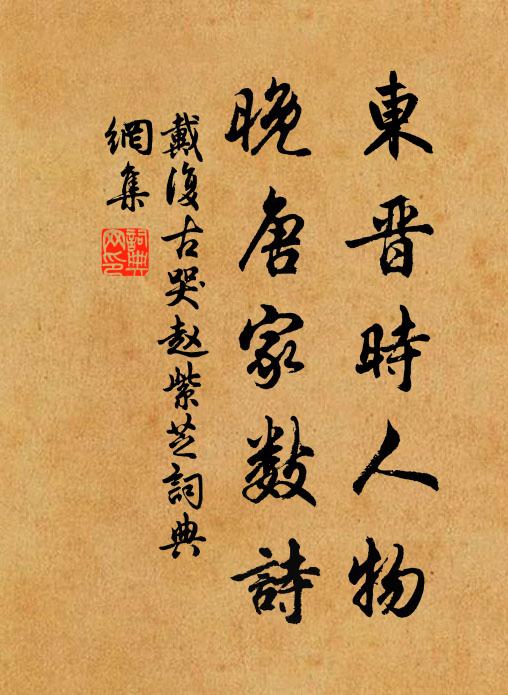 東晋時人物
晚唐家数詩
戴復古哭赵紫芝詞典
網集
詞典
网印